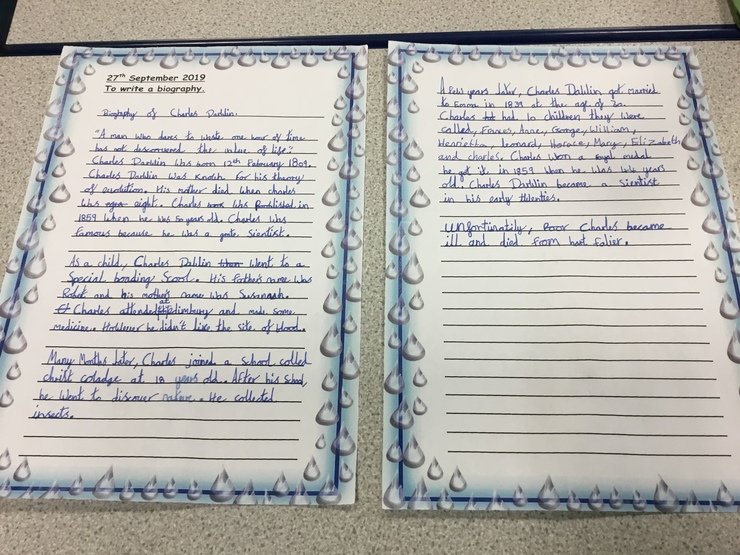 27th September 2019
To write a biography.
Biography of Charles Darwin.
"A man who dares to waste one hour of time
has not discovered the value of life."
Charles Darwin was born 12th February 1809.
Charles Darwin was for his theory
of evolution. His mother died when charles
was eight. Charles was in
1859 when he was 50 years old. Charles was
famous because he was a sientist.
As a child, Charles Dahlin went to a
Special bonding Scool. His father's name was
Robot and his mother's name was Susannah.
Charles attended and made some
medicine. he didn't like the site of blood.
Many Months later, Charles joined a school called
christ coladge at 18 years old. After his school,
he went to discover nature. He collected
insects.
A few years later, Charles Dahlin got married
to Emma in 1839 at the age of 30.
Charles had 10 children they were
called, Frances, Anne, George, William,
Henrietta, Leonard, Horace, Mary, Elizabeth
and charles. Charles won a royal medal
he got it in 1853 when he was 44 years
old. Charles Darwin became a sientist
in his early
Unfortinatily, Poor Charles became
ill and died from hart